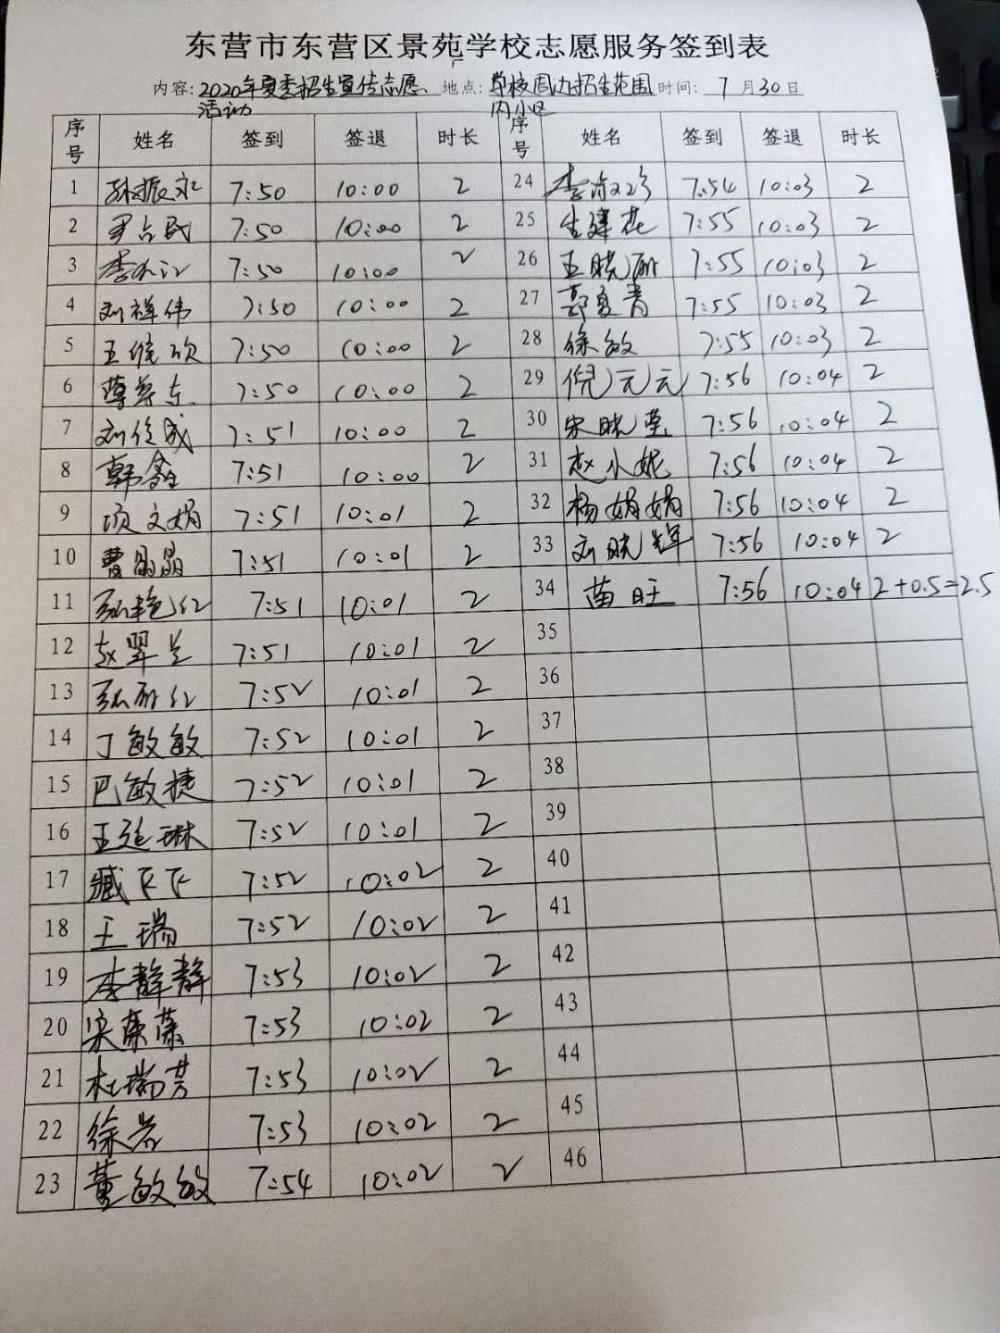 东营市东营区景苑学校志愿服务签到表
内容:2020年夏季招生宣传志愿 地点:学校周边招生范围 时间: 7月30日
活动 内小区
序号 姓名 签到 签退 时长 序号 姓名 签到 签退 时长
1 孙振 7:50 10:00 2 24 李 7:54 10:03 2
2 民 7:50 10:00 2 25 生建花 7:55 10:03 2
3 李 7:50 10:00 2 26 王晓丽 7:55 10:03 2
4 刘祥伟 7:50 10:00 2 27 郭夏青 7:55 10:03 2
5 王维欣 7:50 10:00 2 28 徐敏 7:55 10:03 2
6 薄 东 7:50 10:00 2 29 倪元元 7:56 10:04 2
7 刘俊成 7:51 10:00 2 30 宋晓莹 7:56 10:04 2
8 韩鑫 7:51 10:00 2 31 赵小妮 7:56 10:04 2
9 项文娟 7:51 10:01 2 32 杨娟娟 7:56 10:04 2
10 曹晶晶 7:51 10:01 2 33 刘晓辉 7:56 10:04 2
11 张艳红 7:51 10:01 2 34 苗旺 7:56 10:04 2+0.5=2.5
12 赵翠兰 7:51 10:01 2 35
13 张 红 7:52 10:01 2 36
14 丁敏敏 7:52 10:01 2 37
15 巴敏捷 7:52 10:01 2 38
16 王延琳 7:52 10:01 2 39
17 臧下下 7:52 10:02 2 40
18 王瑞 7:52 10:02 2 41
19 李静静 7:53 10:02 2 42
20 宋蕖蕖 7:53 10:02 2 43
21 杜瑞芳 7:53 10:02 2 44
22 徐岩 7:53 10:02 2 45
23 董敏敏 7:54 10:02 2 46